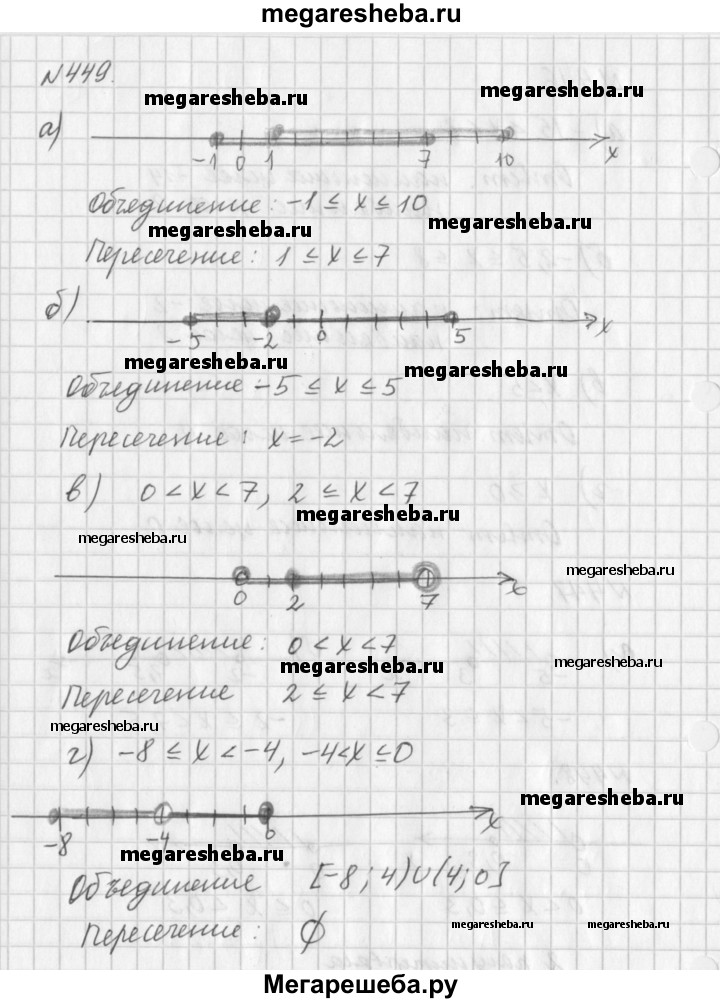 megaresheba.ru
№449.
megaresheba.ru
megaresheba.ru
а)
-1 0 1 7 10 x
Объединение: -1 ≤ x ≤ 10
megaresheba.ru
megaresheba.ru
Пересечение: 1 ≤ x ≤ 7
б)
-5 -2 0 5 x
megaresheba.ru
megaresheba.ru
Объединение -5 ≤ x ≤ 5
Пересечение: x = -2
в) 0 < x < 7, 2 ≤ x < 7
megaresheba.ru
megaresheba.ru
megaresheba.ru
0 2 7 x
Объединение: 0 < x < 7
megaresheba.ru
megaresheba.ru
Пересечение 2 ≤ x < 7
megaresheba.ru
г) -8 ≤ x < -4, -4 < x ≤ 0
megaresheba.ru
-8 -4 0 x
megaresheba.ru
Объединение [-8; 4)∪(4; 0]
Пересечение: ∅
megaresheba.ru
megaresheba.ru
Мегарешеба.ру